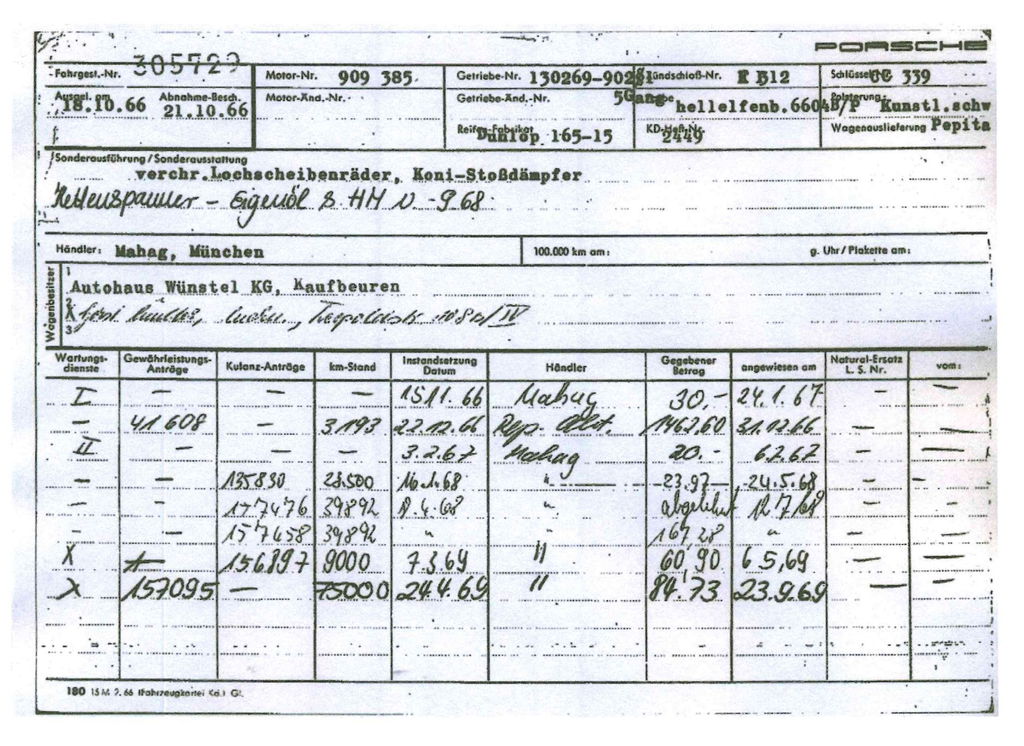 PORSCHE
Fahrgest.-Nr. 305729 Motor-Nr. 909 385. Getriebe-Nr. 130269-90281 Zündschloß-Nr. K 512 Schlüssel 339
Ausgel. am 18.10.66 Abnahme-Besch. 21.10.66 Motor-Änd.-Nr. Getriebe-Änd.-Nr. 5Gang hellelfenb.6604B/P Polsterung Kunstl.schw
Reifen-Fabrikat Dunlop 165-15 KD-Heft-Nr. 2449 Wagenauslieferung Pepita
Sonderausführung/Sonderausstattung
verchr.Lochscheibenräder, Koni-Stoßdämpfer
Kettenspanner - Eigenöl s. HM v. -9.68
Händler: Mahag, München 100.000 km am: g. Uhr/Plakette am:
Wagenbesitzer
1 Autohaus Wünstel KG, Kaufbeuren
2
3
Wartungs-dienste Gewährleistungs-Anträge Kulanz-Anträge km-Stand Instandsetzung Datum Händler Gegebener Betrag angewiesen am Natural-Ersatz L. S. Nr. vom:
I — — — 15.11.66 Mahag 30.- 24.1.67 —
— 41608 — 3193 22.12.66 Rep. Abt. 1462,60 31.12.66 — —
II — — — 3.2.67 Mahag 20.- 6.2.67 — —
— — 135830 23.500 16.1.68 " 23,97 24.5.68 — —
— — 157476 39892 8.4.68 " abgelehnt 12.7.68 — —
— — 157458 39892 " " 167 28 " — —
X — 156897 9000 7.3.69 " 60,90 6 5,69 — —
X 157095 — 75000 24.4.69 " 84.73 23.9.69 — —
180 15 M 2. 66 (Fahrzeugkartei Kd.) Gl.